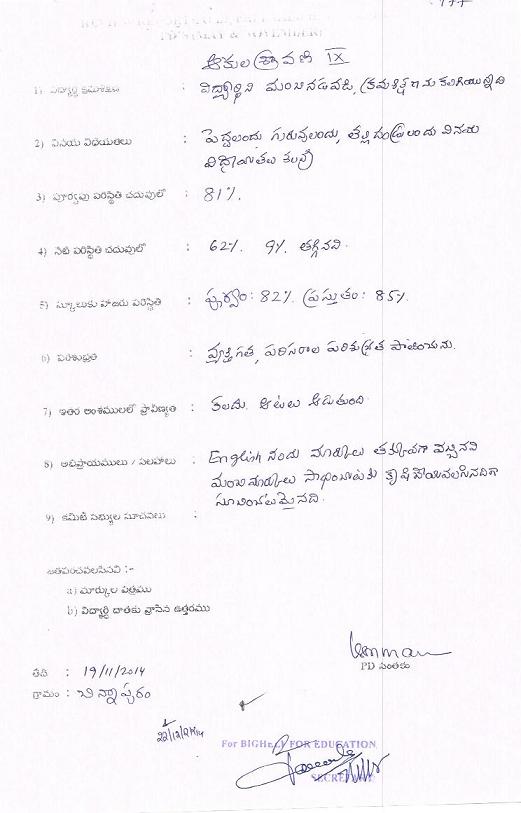 ఆకుల శ్రావణి IX
1) విద్యార్థి క్రమశిక్షణ : విద్యార్థిని మంచినడవడి, క్రమశిక్షణను కలిగియున్నది
2) వినయ విధేయతలు : పెద్దలందు గురువులందు, తల్లిదండ్రులందు వినయ
విధేయతలు కలవు
3) పూర్వపు పరిస్థితి చదువులో : 81%.
4) నేటి పరిస్థితి చదువులో : 62%. 9% తగ్గినది.
5) స్కూలుకు హాజరు పరిస్థితి : పూర్వం: 82%. ప్రస్తుతం: 85%.
6) పరిశుభ్రత : వ్యక్తిగత, పరిసరాల పరిశుభ్రత పాటించును.
7) ఇతర అంశములలో ప్రావీణ్యత : కలదు. ఆటలు ఆడుతుంది
8) అభిప్రాయములు / సలహాలు : English నందు మార్కులు తక్కువగా వచ్చినవి
మంచి మార్కులు సాధించుటకు కృషి చేయవలసినదిగా
సూచించటమైనది.
9) కమిటీ సభ్యుల సూచనలు :
జతపరచవలసినవి :-
a) మార్కుల పత్రము
b) విద్యార్థి దాతకు వ్రాసిన ఉత్తరము
PD సంతకం
తేది : 19/11/2014
గ్రామం : చిన్నాపురం
22/12/2014
For BIGHELP FOR EDUCATION
SECRETARY